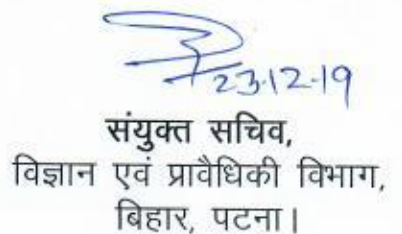 23.12.19
संयुक्त सचिव,
विज्ञान एवं प्रावैधिकी विभाग,
बिहार, पटना।